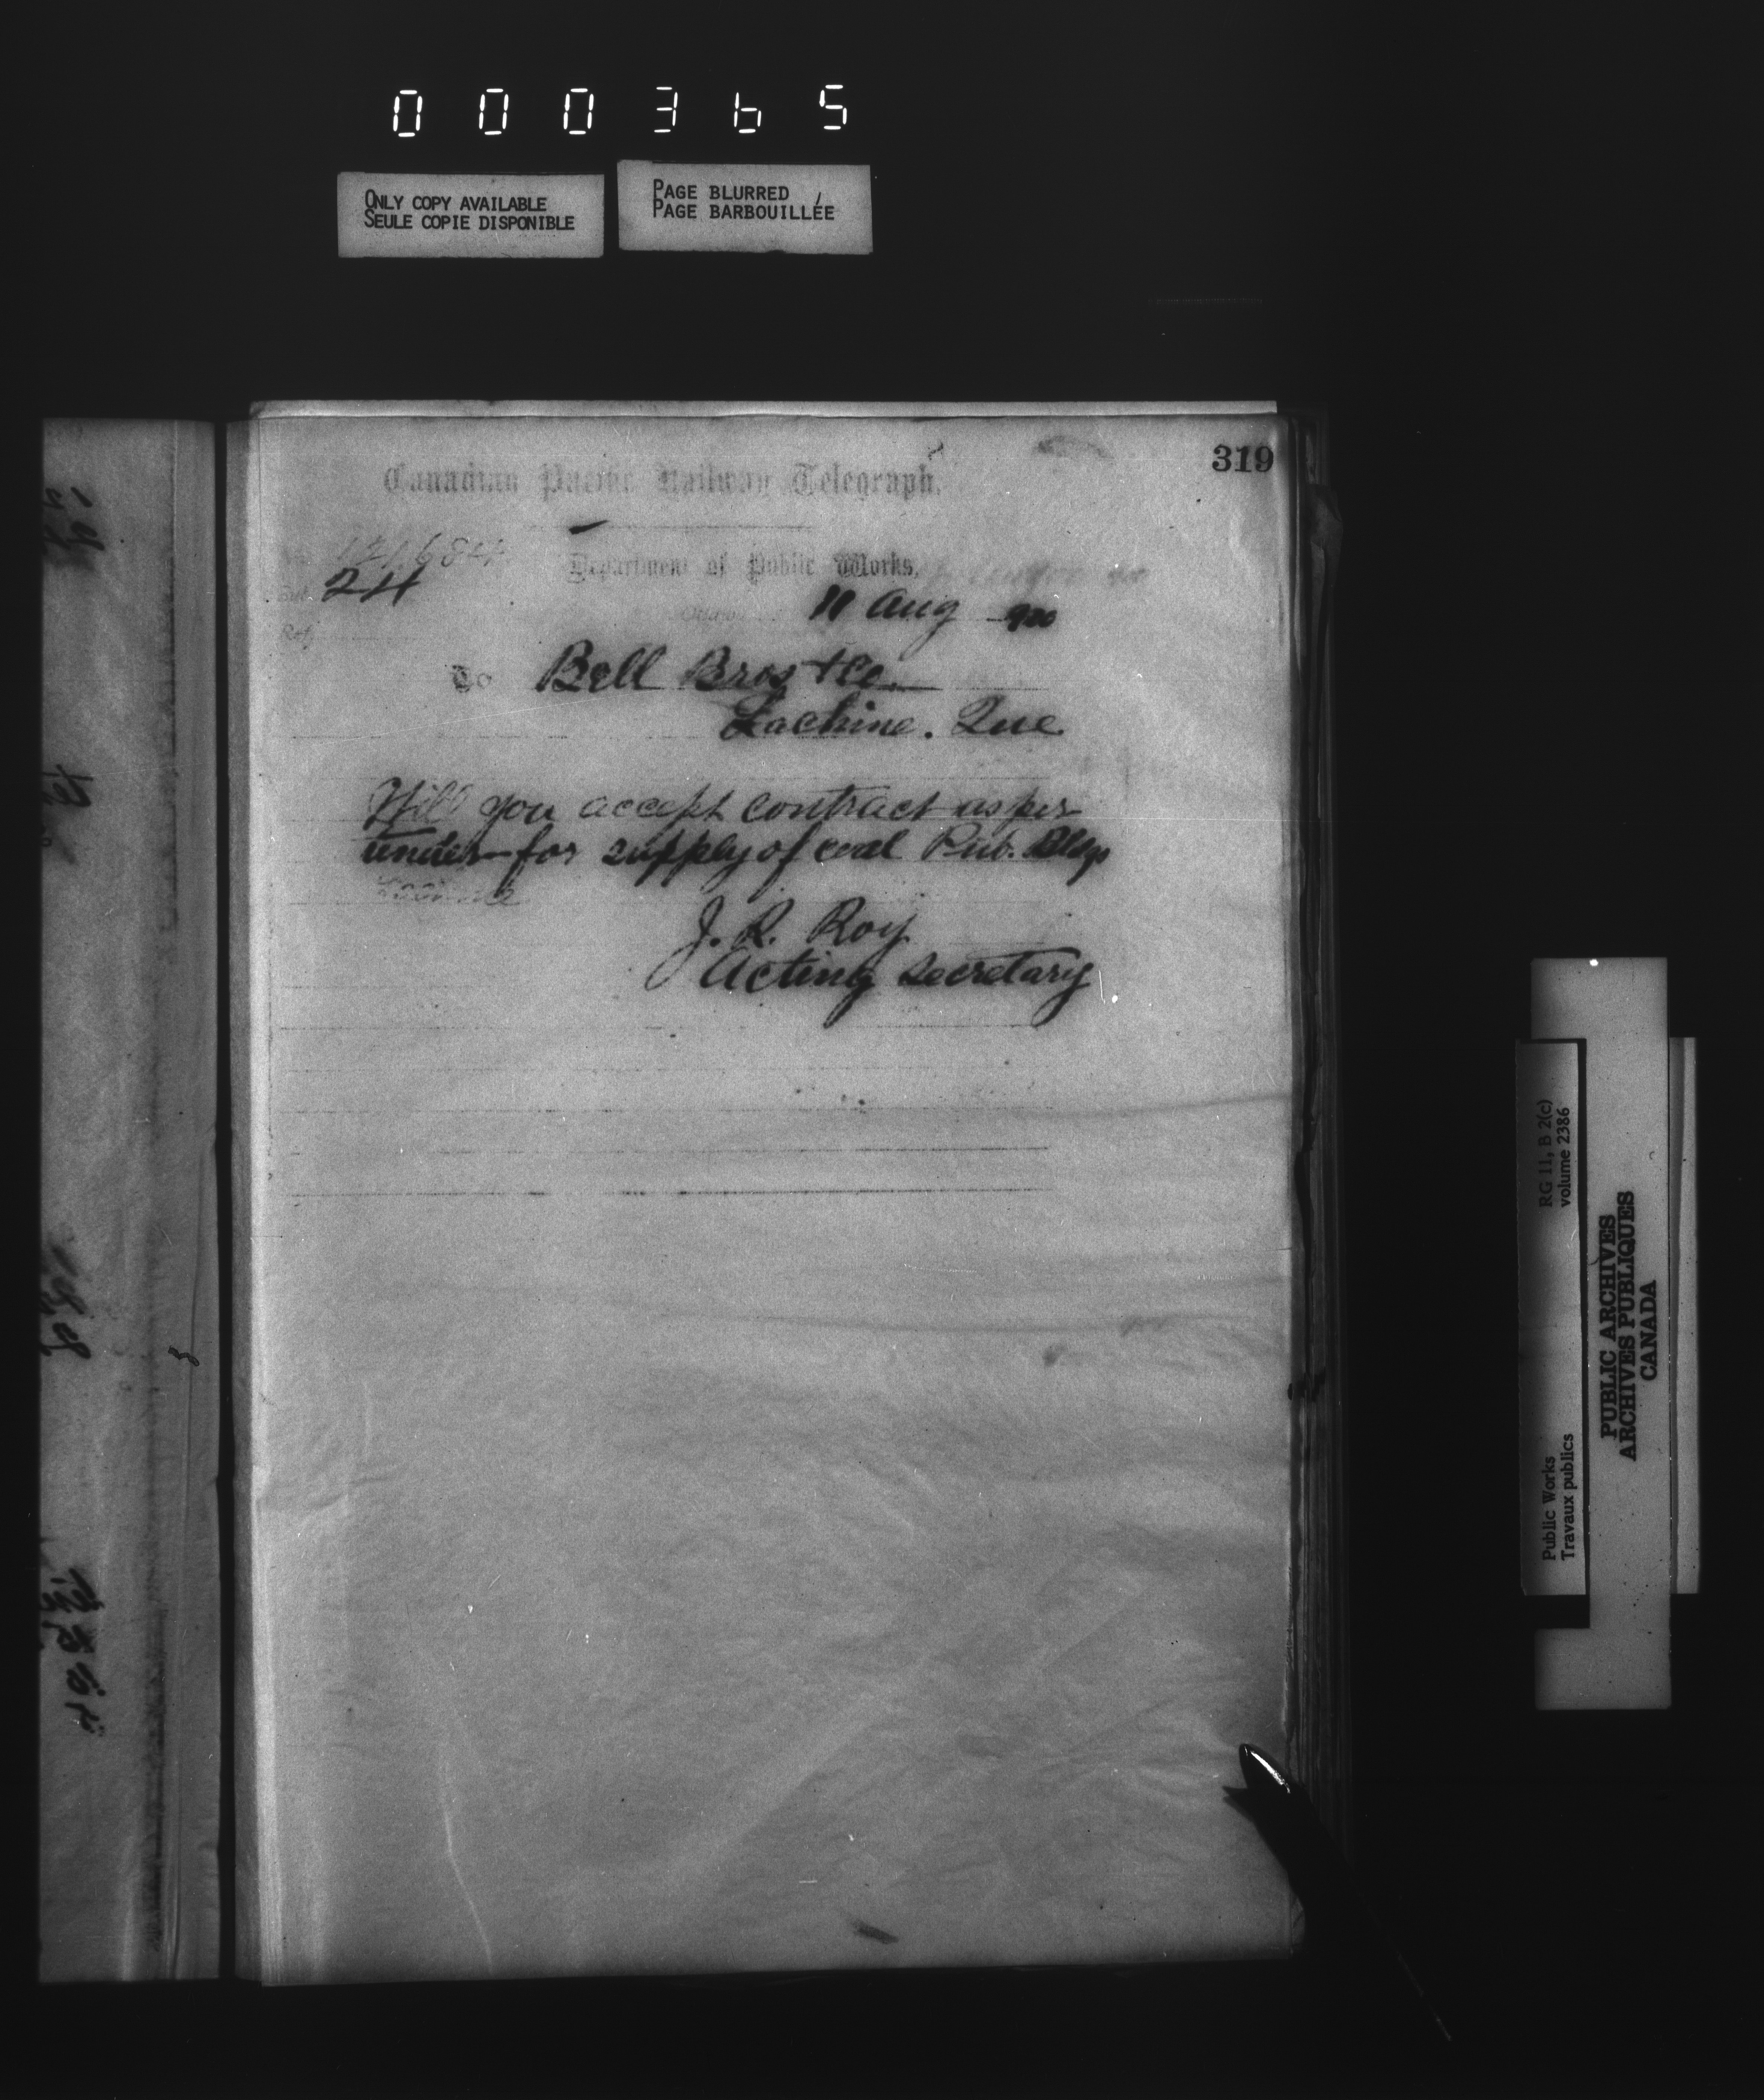 000365
ONLY COPY AVAILABLE
SEULE COPIE DISPONIBLE
PAGE BLURRED
PAGE BARBOUILLÉE
319
Canadian Pacific Railway Telegraph.
Department of Public Works,
24
Ref.
Ottawa
11 Aug 900
To Bell Bros & Co
Lachine. Que.
Will you accept contract as per
tender for supply of coal Pub. Bldgs
Lachine
J. R. Roy
Acting Secretary
RG 11, B 2(c)
volume 2386
Public Works
Travaux publics
PUBLIC ARCHIVES
ARCHIVES PUBLIQUES
CANADA